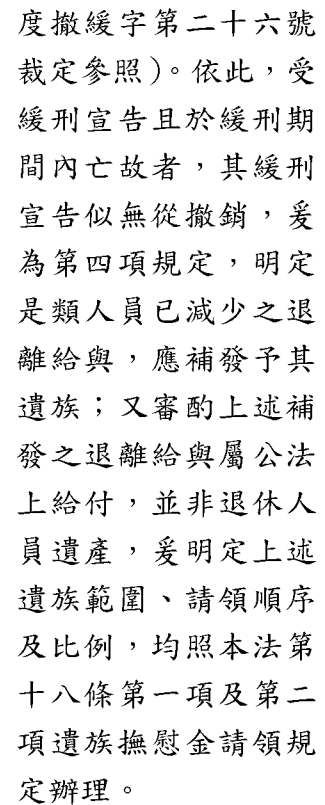 度撤緩字第二十六號
裁定參照)。依此,受
緩刑宣告且於緩刑期
間內亡故者,其緩刑
宣告似無從撤銷,爰
為第四項規定,明定
是類人員已減少之退
離給與,應補發予其
遺族;又審酌上述補
發之退離給與屬公法
上給付,並非退休人
員遺產,爰明定上述
遺族範圍、請領順序
及比例,均照本法第
十八條第一項及第二
項遺族撫慰金請領規
定辦理。